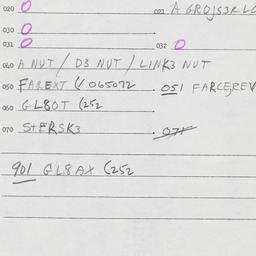 020 O 021 A GROJS3R LO
030 O
031 O 032 O
040 A NUT / D3 NUT / LINK3 NUT
050 FAREXT (/ 065072 . 051 FARCEJREV
060 GL80T (252
070 STFRSK3 . 071
901 GL8AX (252